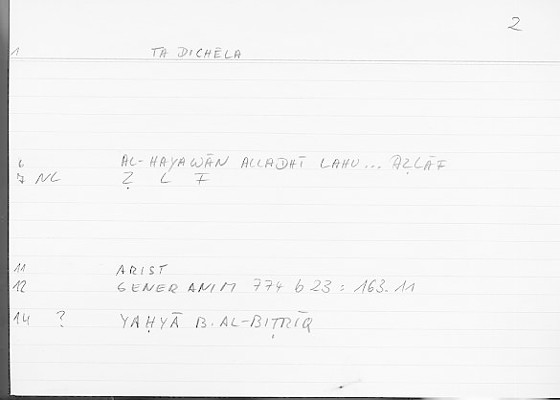 2
1 TA DICHĒLA
6 AL-HAYAWĀN ALLADHĪ LAHU... AẒLĀF
7 NL Ẓ L F
11 ARIST
12 GENER ANIM 774 b 23 : 163.11
14 ? YAḤYĀ B. AL-BIṬRĪQ